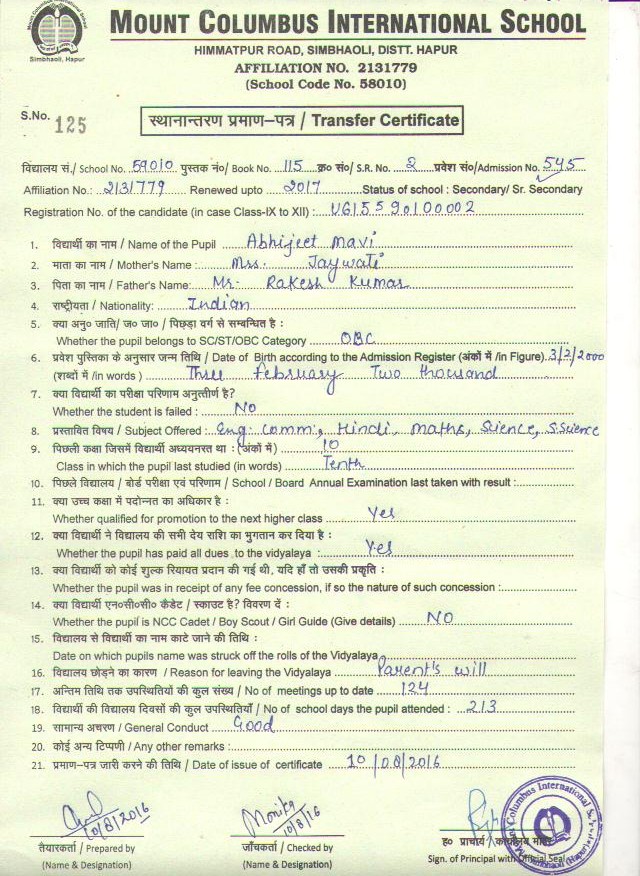 Simbhaoli, Hapur
MOUNT COLUMBUS INTERNATIONAL SCHOOL
HIMMATPUR ROAD, SIMBHAOLI, DISTT. HAPUR
AFFILIATION NO. 2131779
(School Code No. 58010)
S.No. 125
स्थानान्तरण प्रमाण–पत्र / Transfer Certificate
विद्यालय सं./ School No. 59010 पुस्तक नं०/ Book No. 115 क्र० सं०/ S.R. No. 2 प्रवेश सं०/Admission No. 545
Affiliation No.: 2131779 Renewed upto 2017 Status of school : Secondary/ Sr. Secondary
Registration No. of the candidate (in case Class-IX to XII) : U615590100002
1. विद्यार्थी का नाम / Name of the Pupil Abhijeet Mavi
2. माता का नाम / Mother's Name : Mrs. Jaywati
3. पिता का नाम / Father's Name: Mr. Rakesh Kumar
4. राष्ट्रीयता / Nationality: Indian
5. क्या अनु० जाति/ ज० जा० / पिछड़ा वर्ग से सम्बन्धित है :
Whether the pupil belongs to SC/ST/OBC Category OBC
6. प्रवेश पुस्तिका के अनुसार जन्म तिथि / Date of Birth according to the Admission Register (अंकों में /in Figure). 3/2/2000
(शब्दों में /in words ) Three February Two thousand
7. क्या विद्यार्थी का परीक्षा परिणाम अनुत्तीर्ण है?
Whether the student is failed : No
8. प्रस्तावित विषय / Subject Offered : Eng. Comm:, Hindi, Maths, Science, S.Science
9. पिछली कक्षा जिसमें विद्यार्थी अध्ययनरत था : (अंकों में) 10
Class in which the pupil last studied (in words) Tenth
10. पिछले विद्यालय / बोर्ड परीक्षा एवं परिणाम / School / Board Annual Examination last taken with result :
11. क्या उच्च कक्षा में पदोन्नत का अधिकार है :
Whether qualified for promotion to the next higher class Yes
12. क्या विद्यार्थी ने विद्यालय की सभी देय राशि का भुगतान कर दिया है :
Whether the pupil has paid all dues to the vidyalaya : Yes
13. क्या विद्यार्थी को कोई शुल्क रियायत प्रदान की गई थी, यदि हाँ तो उसकी प्रकृति :
Whether the pupil was in receipt of any fee concession, if so the nature of such concession :
14. क्या विद्यार्थी एन०सी०सी० कैडेट / स्काउट है? विवरण दें :
Whether the pupil is NCC Cadet / Boy Scout / Girl Guide (Give details) NO
15. विद्यालय से विद्यार्थी का नाम काटे जाने की तिथि :
Date on which pupils name was struck off the rolls of the Vidyalaya
16. विद्यालय छोड़ने का कारण / Reason for leaving the Vidyalaya Parent's will
17. अन्तिम तिथि तक उपस्थितियों की कुल संख्या / No of meetings up to date 124
18. विद्यार्थी की विद्यालय दिवसों की कुल उपस्थितियाँ / No of school days the pupil attended : 213
19. सामान्य अचरण / General Conduct Good
20. कोई अन्य टिप्पणी / Any other remarks :
21. प्रमाण-पत्र जारी करने की तिथि / Date of issue of certificate 10/08/2016
10/8/2016 Monika 10/8/16
तैयारकर्ता / Prepared by जाँचकर्ता / Checked by ह० प्राचार्य
(Name & Designation) (Name & Designation) Sign. of Principal with Official Seal
Mount Columbus International School Simbhaoli (Hapur)